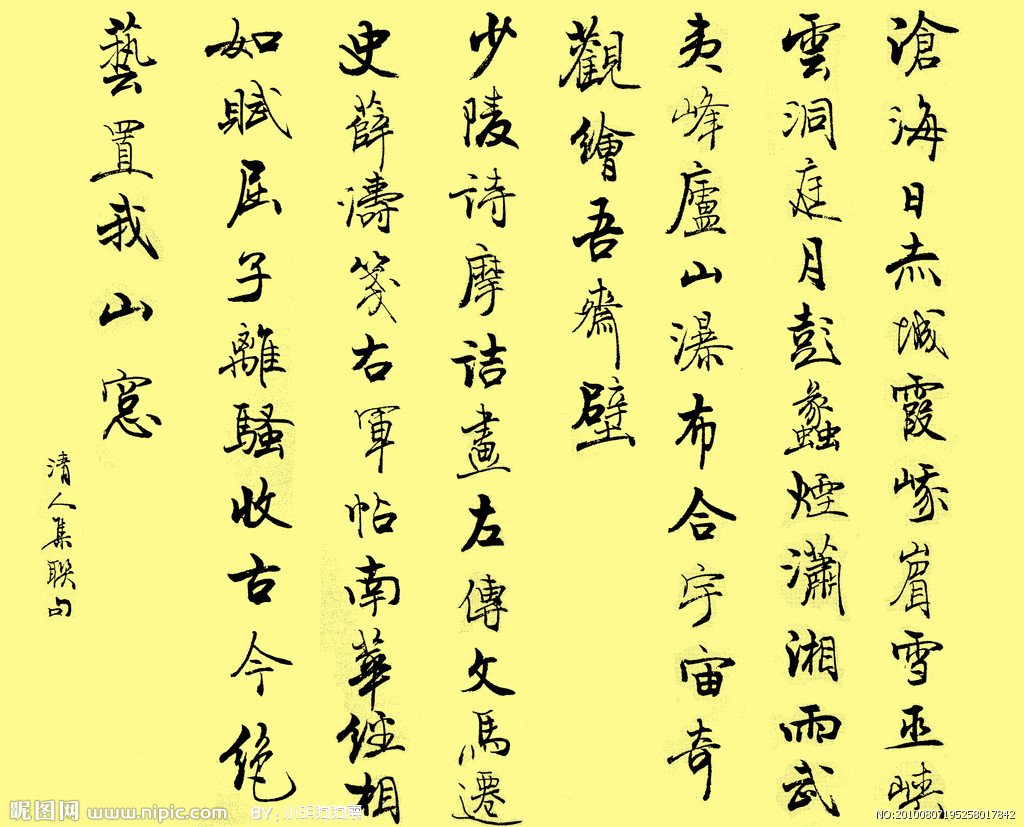 滄海日赤城霞峨嵋雪巫峽
雲洞庭月彭蠡煙瀟湘雨武
夷峰廬山瀑布合宇宙奇
觀繪吾齋壁
少陵詩摩詰畫左傳文馬遷
史薛濤箋右軍帖南華經相
如賦屈子離騷收古今絶
藝置我山窻
清人集聯句
昵图网 www.nipic.com
BY:
NO:20100807195258017842